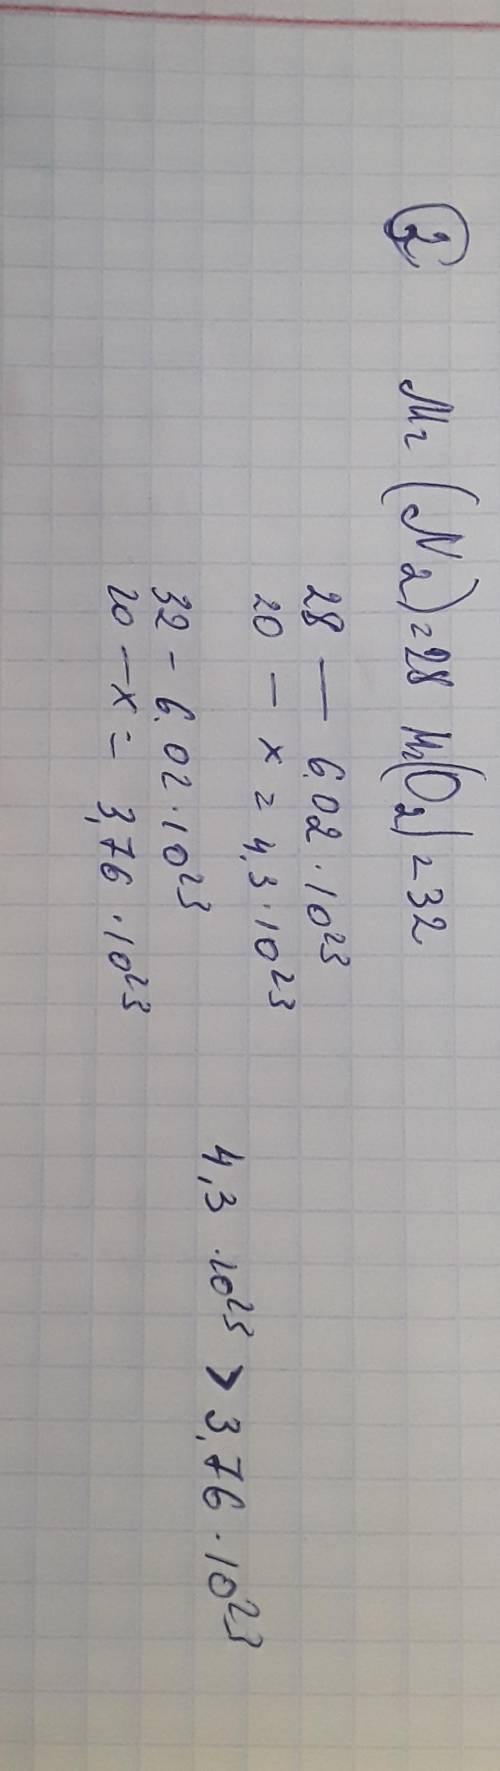 2
Mr (N2) = 28 Mr(O2) = 32
28 — 6,02 · 10²³
20 — x = 4,3 · 10²³
32 - 6,02 · 10²³
20 — x = 3,76 · 10²³
4,3 · 10²³ > 3,76 · 10²³